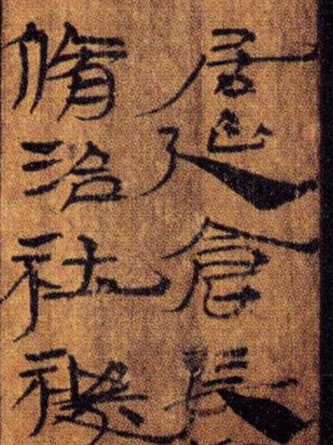 居延倉長
脩治社禝